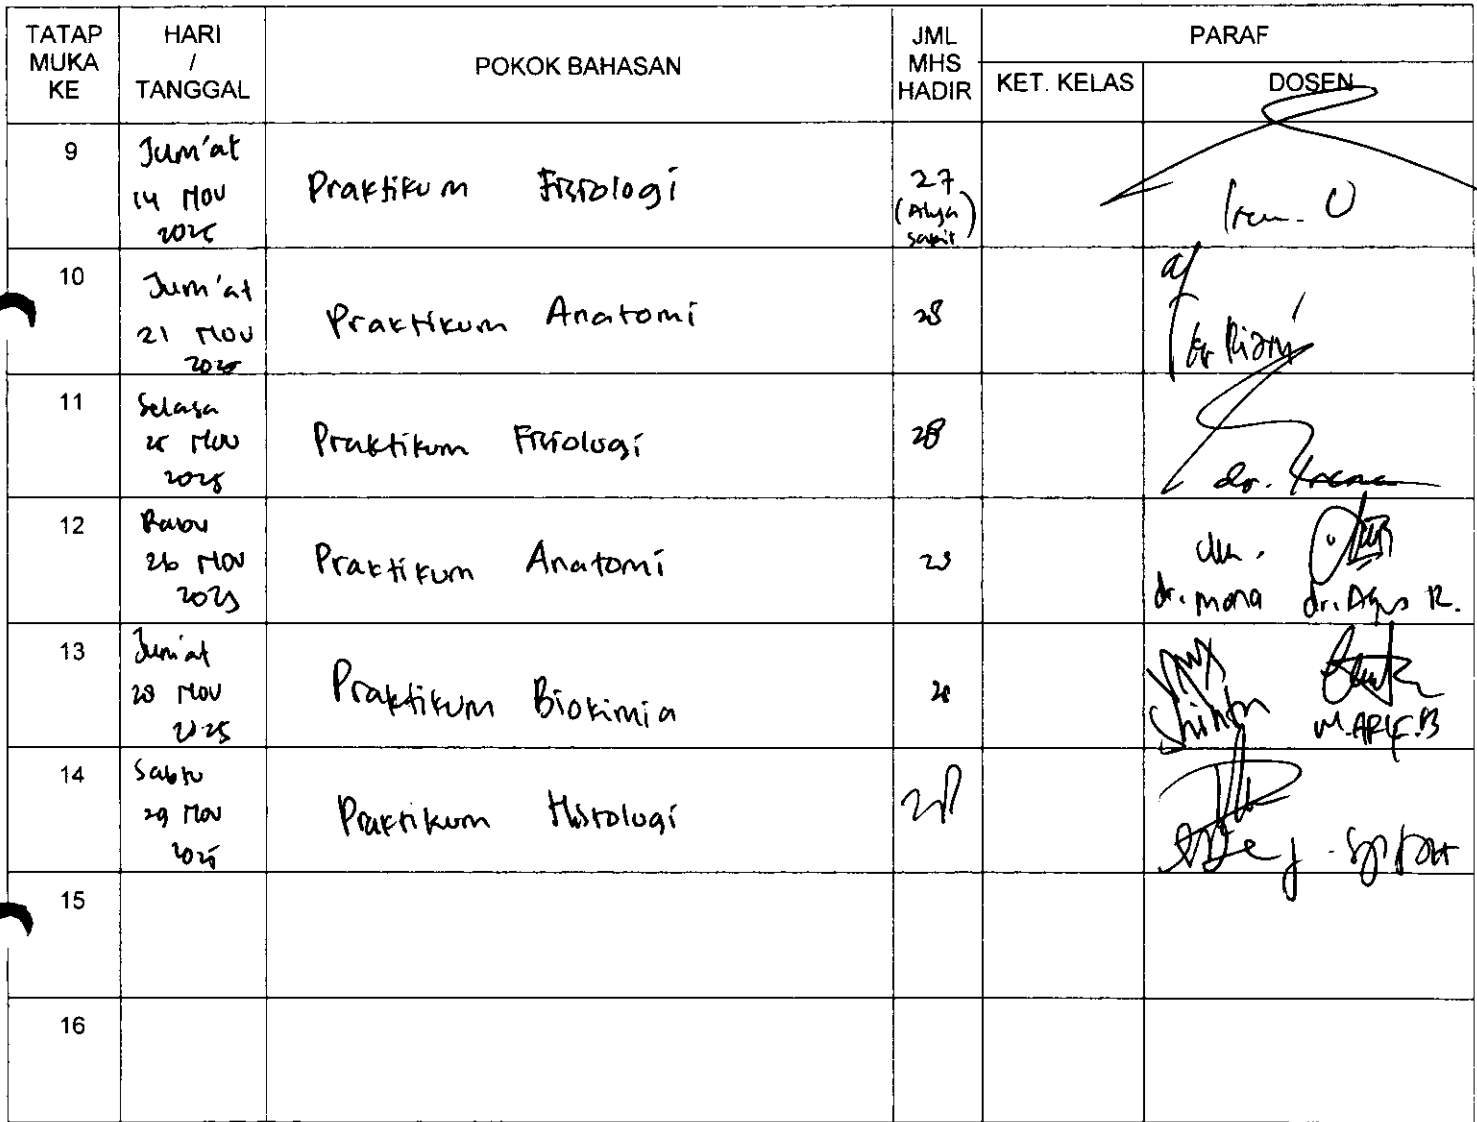 TATAP MUKA KE
HARI / TANGGAL
POKOK BAHASAN
JML MHS HADIR
PARAF
KET. KELAS
DOSEN
9
Jum'at
14 Nov
2025
Praktikum Fisiologi
27
(Alya)
sakit
10
Jum'at
21 Nov
2025
Praktikum Anatomi
28
11
Selasa
25 Nov
2025
Praktikum Fisiologi
28
dr. Irena
12
Rabu
26 Nov
2025
Praktikum Anatomi
28
dr. Mona dr. Agus R.
13
Jum'at
28 Nov
2025
Praktikum Biokimia
28
Shinta M. ARIF. B
14
Sabtu
29 Nov
2025
Praktikum Histologi
28
15
16